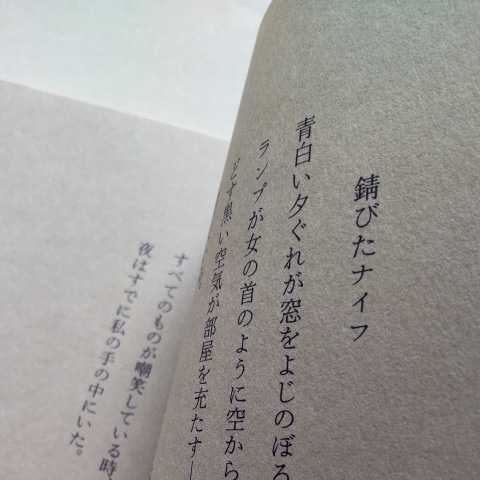 錆びたナイフ
青白い夕ぐれが窓をよじのぼる
ランプが女の首のように空から
どす黒い空気が部屋を充たす—
すべてのものが嘲笑している時、
夜はすでに私の手の中にいた。